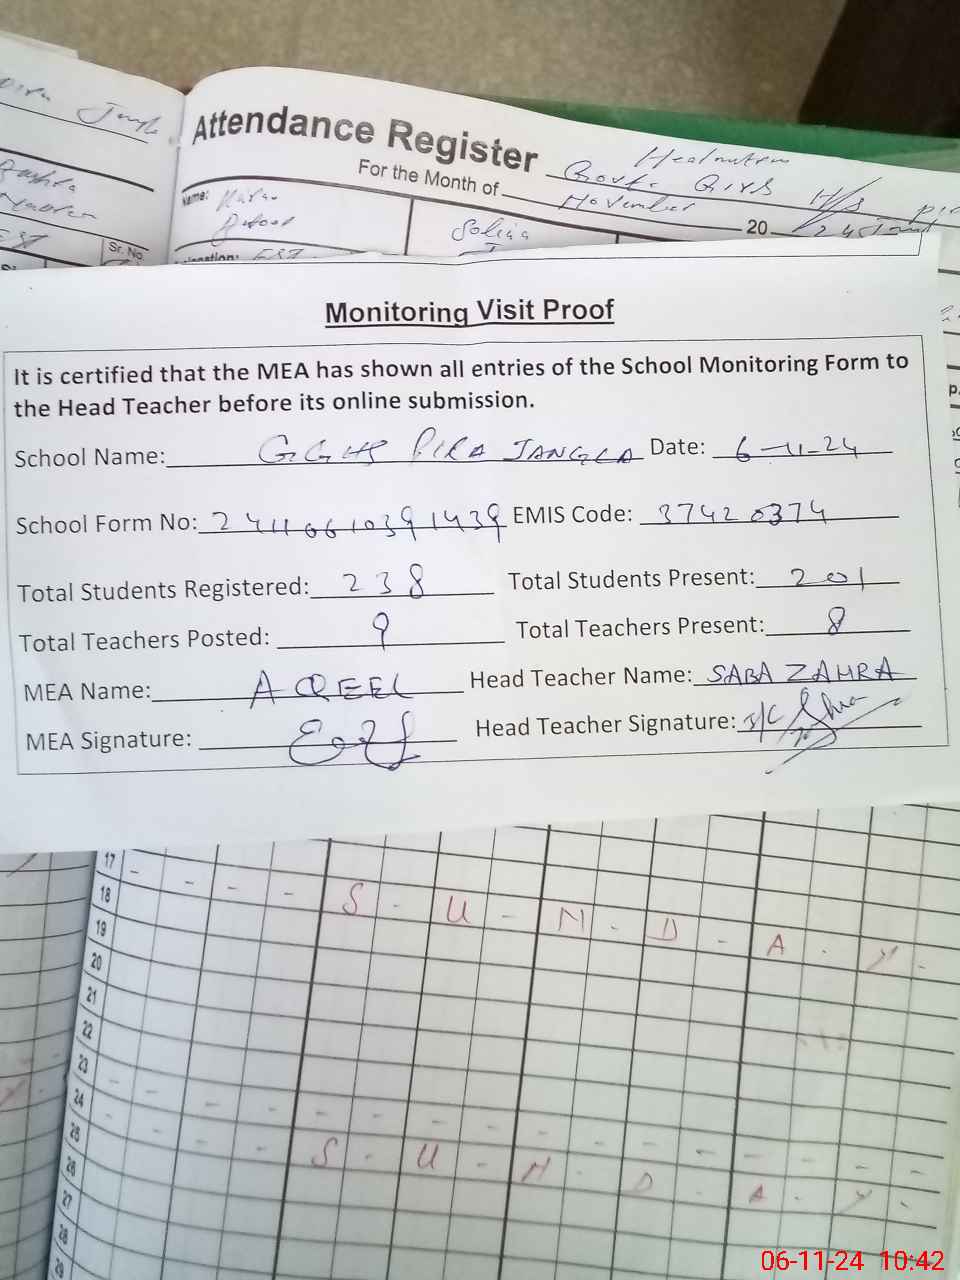 Attendance Register
For the Month of November 20 24
Govt. Girls H/S
Name:
Sr. No
Monitoring Visit Proof
It is certified that the MEA has shown all entries of the School Monitoring Form to
the Head Teacher before its online submission.
School Name: GGHS PIRA JANGLA Date: 6-11-24
School Form No: 24110610391439 EMIS Code: 37420374
Total Students Registered: 238 Total Students Present: 201
Total Teachers Posted: 9 Total Teachers Present: 8
MEA Name: AQEEL Head Teacher Name: SABA ZAHRA
MEA Signature: Head Teacher Signature:
17
18 S-U-N-D-A-Y-
19
20
21
22
23
24
25 S-U-N-D-A-Y-
26
27
28
29
06-11-24 10:42